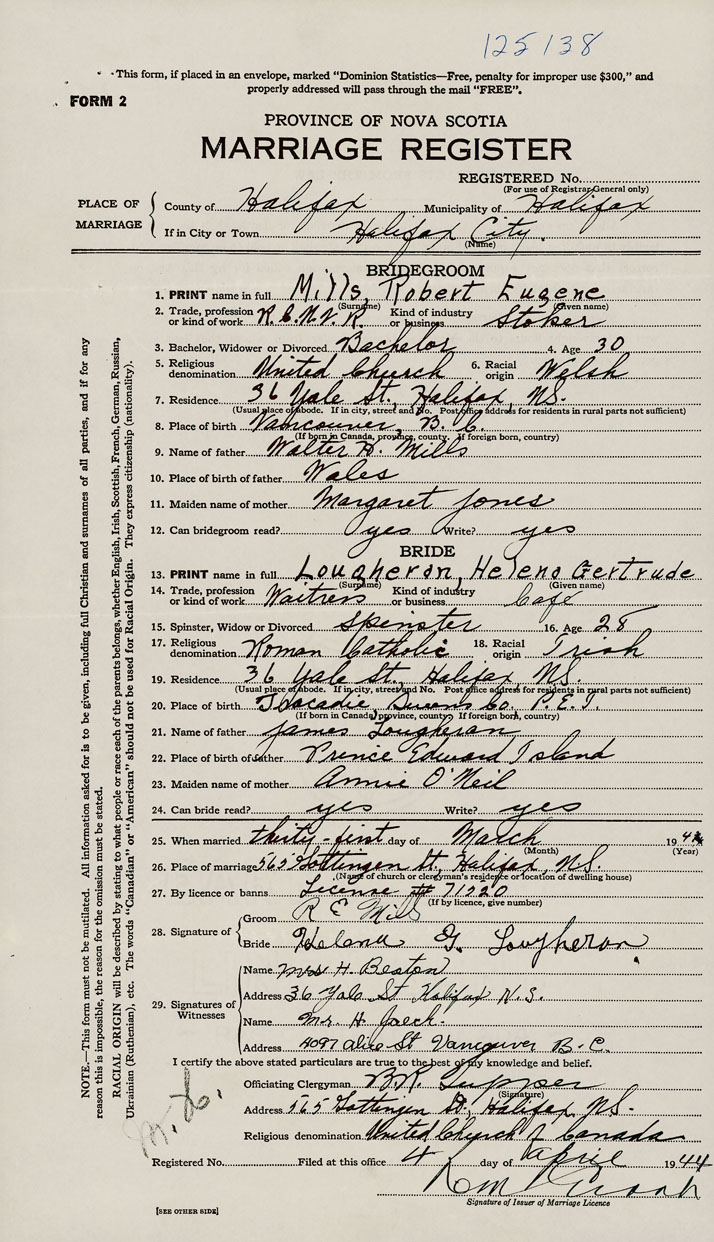 125138
This form, if placed in an envelope, marked "Dominion Statistics—Free, penalty for improper use $300," and
properly addressed will pass through the mail "FREE".
FORM 2
PROVINCE OF NOVA SCOTIA
MARRIAGE REGISTER
REGISTERED No.
(For use of Registrar General only)
PLACE OF MARRIAGE
County of Halifax Municipality of Halifax
If in City or Town Halifax City
(Name)
BRIDEGROOM
1. PRINT name in full Mills, Robert Eugene
(Surname) (Given name)
2. Trade, profession or kind of work R.C.N.V.R. Kind of industry or business Stoker
3. Bachelor, Widower or Divorced Bachelor 4. Age 30
5. Religious denomination United Church 6. Racial origin Welsh
7. Residence 36 Yale St., Halifax, N.S.
(Usual place of abode. If in city, street and No. Post office address for residents in rural parts not sufficient)
8. Place of birth Vancouver, B.C.
(If born in Canada, province, county. If foreign born, country)
9. Name of father Walter H. Mills
10. Place of birth of father Wales
11. Maiden name of mother Margaret Jones
12. Can bridegroom read? yes Write? yes
BRIDE
13. PRINT name in full Lougheran, Helena Gertrude
(Surname) (Given name)
14. Trade, profession or kind of work Waitress Kind of industry or business Cafe
15. Spinster, Widow or Divorced Spinster 16. Age 28
17. Religious denomination Roman Catholic 18. Racial origin Irish
19. Residence 36 Yale St., Halifax, N.S.
(Usual place of abode. If in city, street and No. Post office address for residents in rural parts not sufficient)
20. Place of birth Co. P.E.I.
(If born in Canada, province, county. If foreign born, country)
21. Name of father James Lougheran
22. Place of birth of father Prince Edward Island
23. Maiden name of mother Annie O'Neil
24. Can bride read? yes Write? yes
25. When married thirty-first day of March 194
(Month) (Year)
26. Place of marriage 565 Gottingen St., Halifax, N.S.
(Name of church or clergyman's residence or location of dwelling house)
27. By licence or banns License # 71220
(If by licence, give number)
28. Signature of
Groom R E Mills
Bride Helena G. Lougheran
29. Signatures of Witnesses
Name Mrs H. Beaton
Address 36 Yale St Halifax N.S.
Name Mr. H
Address 4097 Alice St Vancouver B-C.
I certify the above stated particulars are true to the best of my knowledge and belief.
Officiating Clergyman Tupper
(Signature)
Address 565 Gottingen St., Halifax, N.S.
Religious denomination United Church of Canada
Registered No. Filed at this office 4 day of April 1944
Signature of Issuer of Marriage Licence
[SEE OTHER SIDE]
NOTE.—This form must not be mutilated. All information asked for is to be given, including full Christian and surnames of all parties, and if for any
reason this is impossible, the reason for the omission must be stated.
RACIAL ORIGIN will be described by stating to what people or race each of the parents belongs, whether English, Irish, Scottish, French, German, Russian,
Ukrainian (Ruthenian), etc. The words "Canadian" or "American" should not be used for Racial Origin. They express citizenship (nationality).